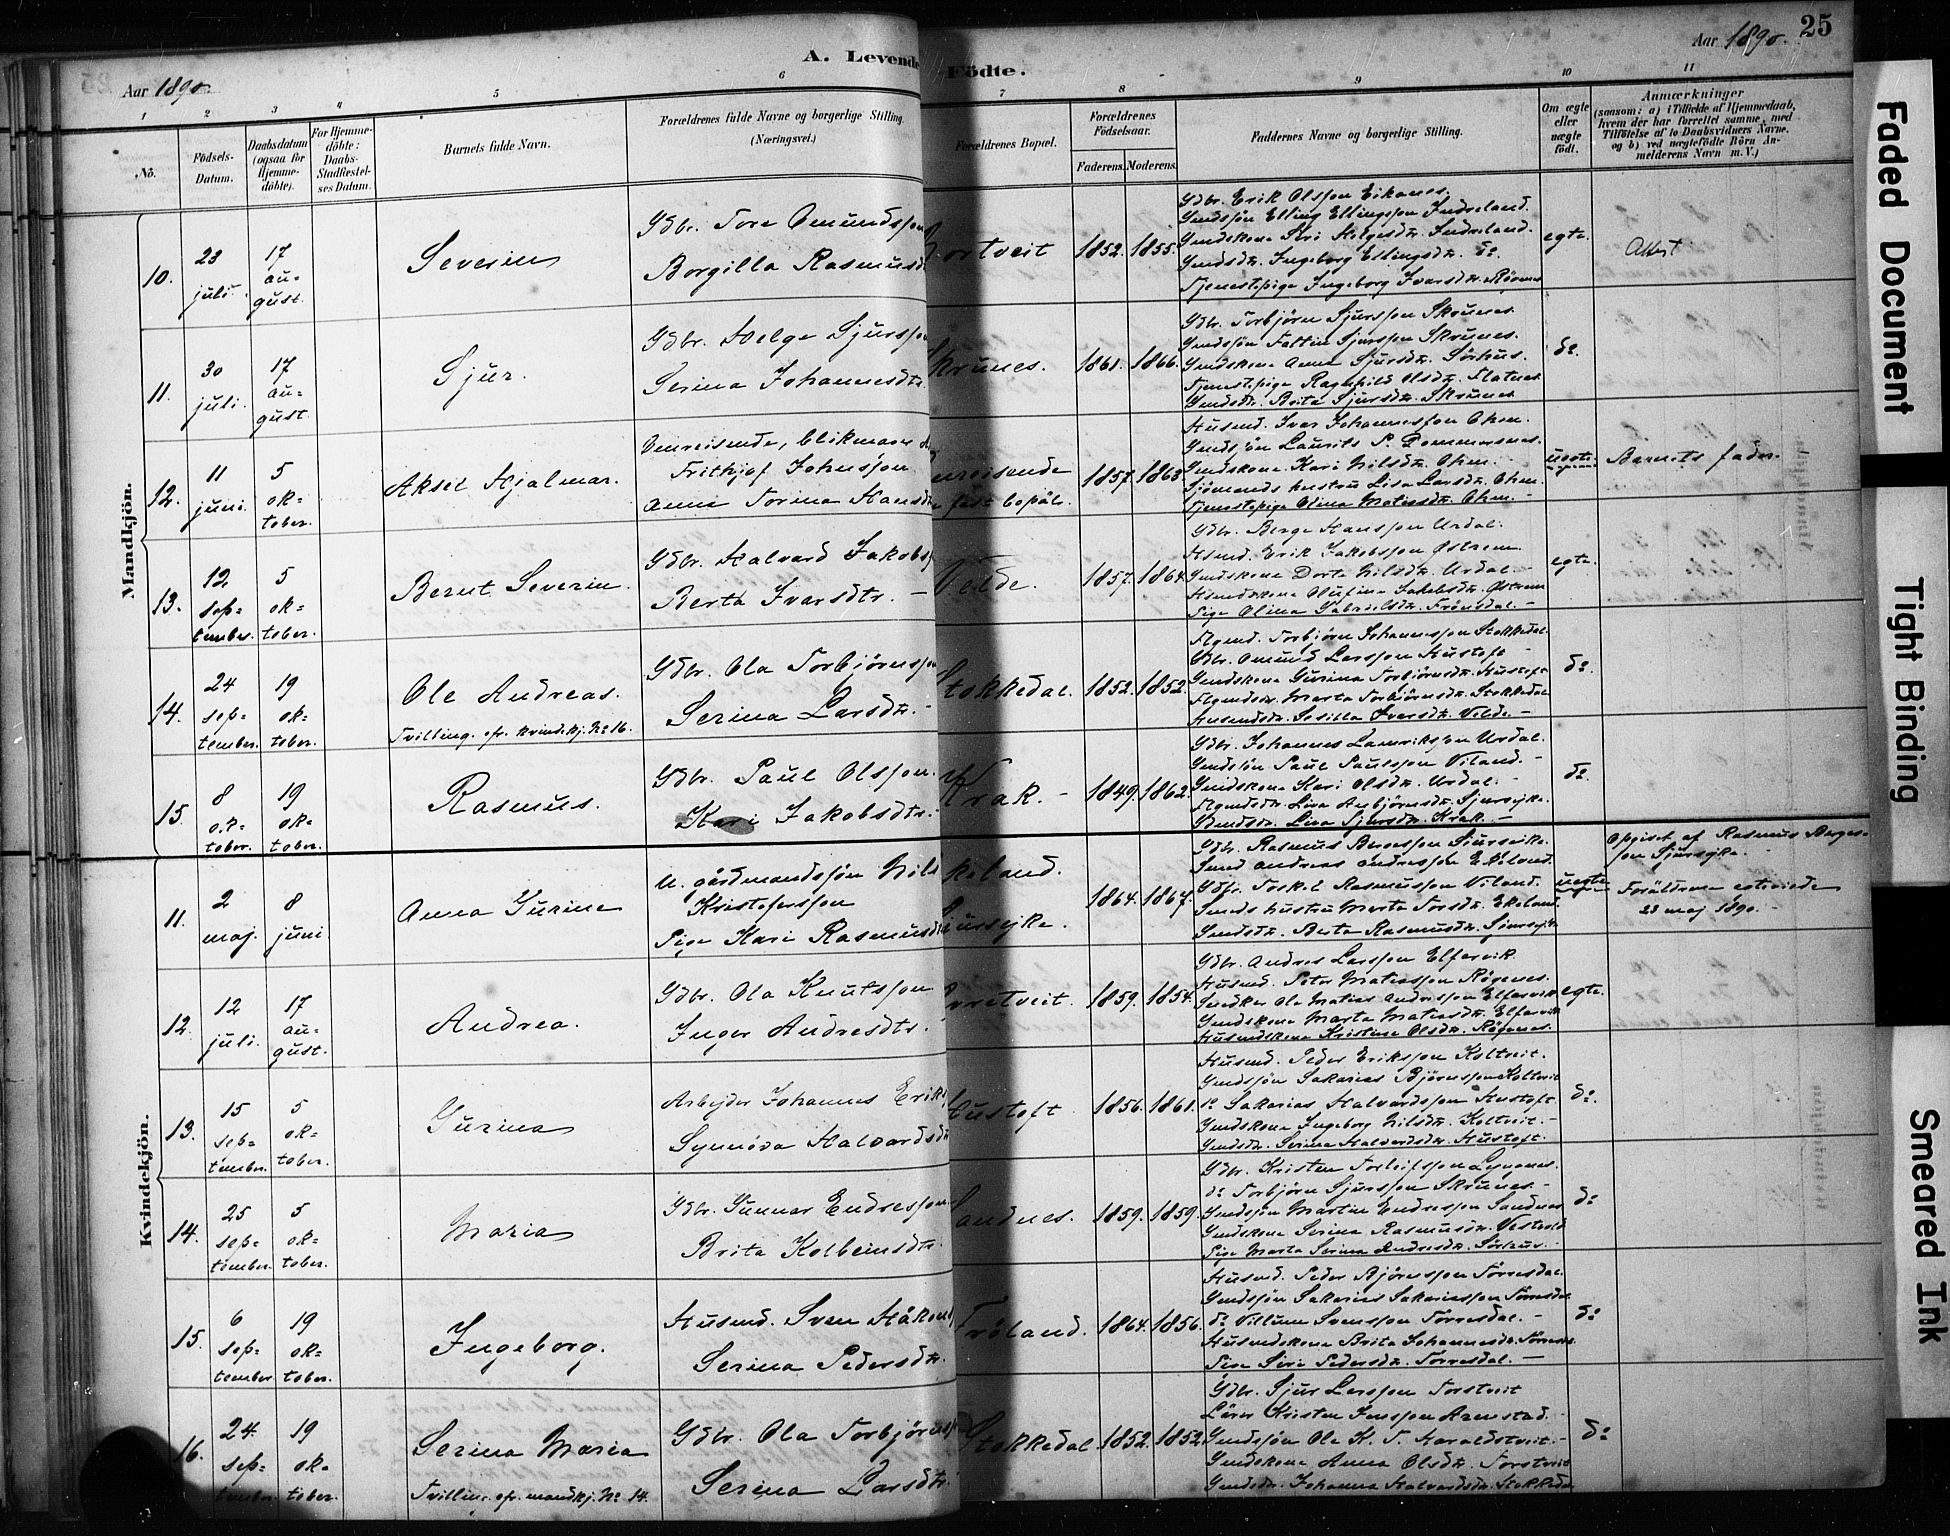 25
Aar 1890.
A. Levende Födte.
Aar 1890.
1 2 3 4 5 6 7 8 9 10 11
No.
Födsels-Datum.
Daabsdatum (ogsaa for Hjemme-döbte).
For Hjemme-döbte: Daabs-Stadfæstel-ses Datum.
Barnets fulde Navn.
Forældrenes fulde Navne og borgerlige Stilling.
(Næringsvei.)
Forældrenes Bopæl.
Forældrenes Födselsaar.
Faderens. Moderens.
Faddernes Navne og borgerlige Stilling.
Om ægte eller uægte födt.
Anmærkninger
(saasom: a) i Tilfælde af Hjemmedaab, hvem der har forrettet samme, med Tilföielse af to Daabsvidners Navne. og b) ved uægtefödte Börn An-melderens Navn m. V.)
Mandkjön.
10.
23 juli.
17 au=gust.
Severin
Gdbr. Tore Omundsson
Borgilla Rasmusd
ortveit
1852. 1855.
Gdbr. Erik Olsson Eikanes.
Gmdssön Elling Ellingsson Indreland.
Gmdskone Siri Helgesdtr. Indreland.
Gmdsdtr. Ingeborg Ellingsdtr. do.
Tjenestepige Ingeborg Ivarsdtr.
egte.
11.
30 juli.
17 au=gust
Sjur.
Gdbr. Helge Sjursson
Serina Johannesdtr.
krunes.
1861. 1866.
Gdbr. Torbjörn Sjursson Skrunes.
Gmdssön Sjursson Skrunes.
Gmdskone Anna Sjursdtr. Sörhus.
Tjenestepige Ragnhild Olsdtr. Flatnes.
Gmdsdtr. Brita Sjursdtr. Skrunes.
do.
12.
11 juni.
5 ok=tober.
Aksel Hjalmar.
Omreisende, blikmager
Frithjof Johnsson
Anne Torina Hansdtr
mreisende
fast bopæl.
1857. 1863.
Husmd. Ivar Johannesson
Gmdssön Laurits P.
Gmdskone Kari Nilsdtr.
Sjömands hustru Lisa Larsdtr.
Tjenestepige Olina Matiasdtr.
uegte
Barnets fader.
13.
12 sep=tember.
5 ok=tober.
Bernt Severin.
Gdbr. Halvard Jakobs
Berta Ivarsdtr. –
Velde.
1857. 1864.
Gdbr. Berge Hansson Urdal.
Husmd. Erik Jakobsson Östrem.
Gmdskone Dorta Nilsdtr. Urdal.
Husmdskone Olufine Jakobsdtr. Östrem
Pige Olina Gabrielsdtr. Frönsdal. –
egte.
14.
24 sep=tember.
19 ok=tober.
Ole Andreas.
Tvilling. cfr. kvindekj. No 16.
Gdbr. Ola Torbjörnsson
Serina Larsdtr. –
Stokkedal.
1852. 1852.
Torbjörn Johannesson Stokkedal.
Gdbr. Omund Larsson Hustoft –
Gmdskone Gurina Torbjörnsdtr. Hustoft
Marta Torbjörnsdtr. Stokkedal
Husmdsdtr. Sesilla Ivarsdtr. Velde. –
do.
15.
8 ok=tober.
19 ok=tober.
Rasmus.
Gdbr. Paul Olsson.
Kari Jakobsdtr.
Krak. –
1849. 1862.
Gdbr. Johannes Lauriksson Urdal.
Gmdssön Paul Paulsson Viland. –
Gmdskone Kari Olsdtr. Urdal. –
Lisa Asbjörnsdtr. Sjursejke.
Gmdsdtr. Lisa Sjursdtr. Krak. –
do.
Kvindekjön.
11.
2 maj.
8 juni.
Anna Gurine
U. gårdmandssön Nils
Kristofersson
Pige Kari Rasmusdtr
keland.
jursejke.
1864. 1867.
Gdbr. Rasmus Bergesson Sjursejke.
Smed Andreas Andresson Ekeland.
Gdbr. Torkel Rasmusson Viland.
Smeds hustru Marta Torsdtr. Ekeland.
Gmdsdtr. Berta Rasmusdtr. Sjursejke
uegte
Opgivet af Rasmus Berges-
son Sjursejke. –
Forældrene egteviede
23 maj 1890. –
12.
12 juli.
17 au=gust.
Andrea.
Gdbr. Ola Knutsson
Inger Andresdtr. –
vretveit.
1859. 1854.
Gdbr. Andres Larsson Elfarvik.
Husmd. Peter Matiasson Rögenes.
Ole Matias Andresson Elfarvik.
Gmdskone Marta Matiasdtr. Elfarvik
Husmdskone Kristine Olsdtr. Rögenes.
egte.
13.
15 sep=tember.
5 ok=tober.
Gurina
Arbejder Johannes Eriks
Synnöva Halvardsdtr
Hustoft
1856. 1861.
Husmd. Peder Eriksson Koltveit.
Gmdssön Sakarias Björnsson Koltveit
do. Sakarias Halvardsson Hustoft
Gmdskone Ingeborg Nilsdtr. Koltveit. –
Gmdsdtr. Serina Halvardsdtr. Hustoft.
do.
14.
25 sep=tember.
5 ok=tober.
Maria
Gdbr. Gunnar Endresson
Brita Kolbeinsdtr.
Sandnes.
1859. 1859
Gdbr. Kristen Torleifsson
do Torbjörn Sjursson Skrunes. –
Gmdssön Martin Endresson Sandnes
Gmdskone Serina Rasmusdtr.
Pige Marta Serina Andresdtr. Sörhus. –
do
15.
6 sep=tember
19 ok=tober.
Ingeborg.
Husmd. Sven Håkons
Serina Pedersdtr.
Tröland.
1864. 1856.
Husmd. Peder Björnsson Törresdal.
Gmdssön Sakarias Sakariasson Törresdal
do. Villum Svensson Törresdal. –
Husmdskone Brita Johannesdtr. Törresdal
Pige Siri Pedersdtr. Törresdal. –
do
16.
24 sep=tember
19 ok=tober.
Serina Maria
Tvilling. cfr. mandkj. No 14.
Gdbr. Ola Torbjörns
Serina Larsdtr
Stokkedal
1852. 1852
Gdbr. Sjur Larsson Torstveit
Lærer Kristen Jensson
Gmdssön Ole K. T. Haraldstveit. –
Gmdskone Anna Olsdtr. Torstveit
Gmdsdtr. Johanna Halvardsdtr. Stokkedal
do
Faded Document
Tight Binding
Smeared Ink